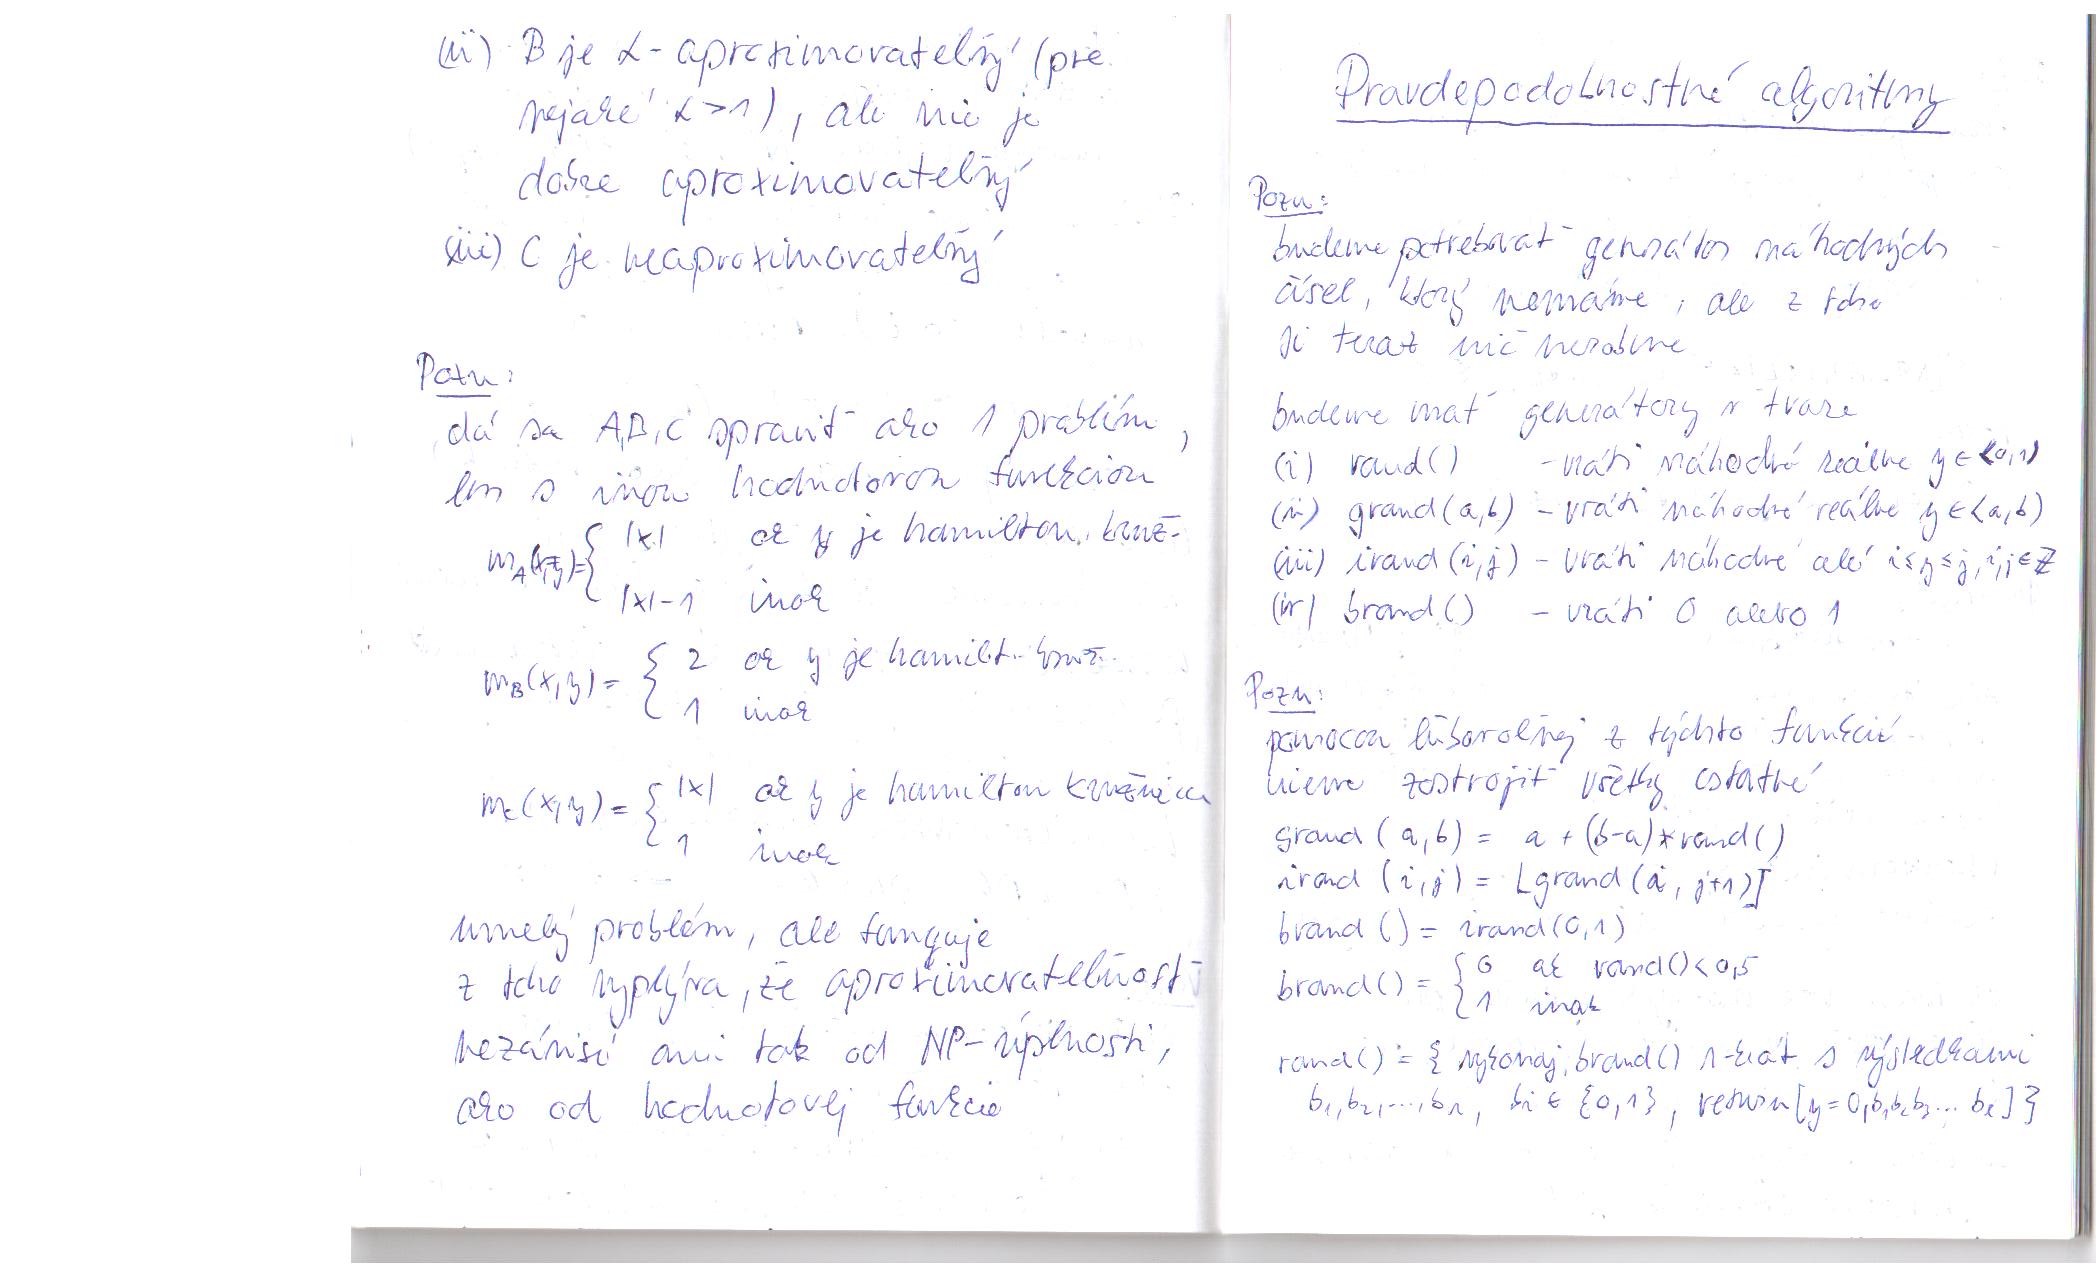 (ii) B je α-aproximovateľný (pre
nejaké α>1), ale nie je
dobre aproximovateľný
(iii) C je neaproximovateľný
Pozn:
dá sa A,B,C spraviť ako 1 problém,
len s inou hodnotovou funkciou
m_A(x,y)= { |x| ak y je hamilton. kruž.
|x|-1 inak
m_B(x,y)= { 2 ak y je hamilt. kruž.
1 inak
m_C(x,y)= { |x| ak y je hamilton kružnica
1 inak
umelý problém, ale funguje
z toho vyplýva, že aproximovateľnosť
nezávisí ani tak od NP-úplnosti,
ako od hodnotovej funkcie
Pravdepodobnostné algoritmy
Pozn:
budeme potrebovať generátor náhodných
čísel, ktorý nemáme, ale z toho
si teraz nič nerobme
budeme mať generátory v tvare
(i) rand() - vráti náhodné reálne y ∈ <0,1)
(ii) grand(a,b) - vráti náhodné reálne y ∈ <a,b)
(iii) irand(i,j) - vráti náhodné celé i≤y≤j, i,j∈Z
(iv) brand() - vráti 0 alebo 1
Pozn:
pomocou ľubovoľnej z týchto funkcií
vieme zostrojiť všetky ostatné
grand(a,b) = a + (b-a)*rand()
irand(i,j) = ⌊grand(i, j+1)⌋
brand() = irand(0,1)
brand() = { 0 ak rand()<0,5
1 inak
rand() = { vykonaj brand() r-krát s výsledkami
b₁,b₂,...,bᵣ, bᵢ ∈ {0,1}, return [y=0,b₁b₂b₃...bᵣ]}